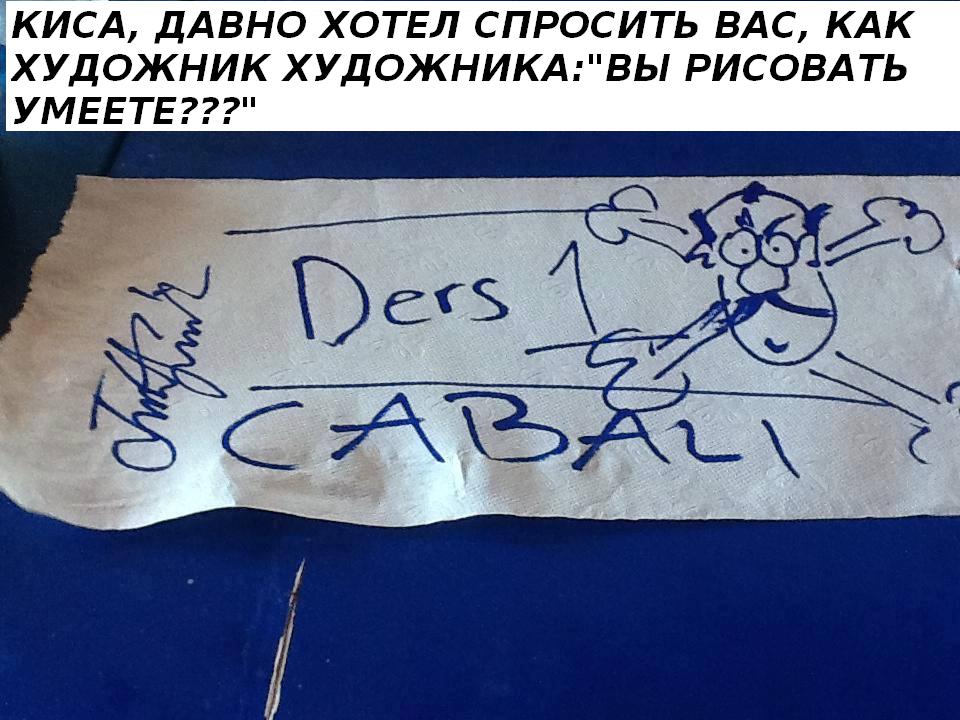 КИСА, ДАВНО ХОТЕЛ СПРОСИТЬ ВАС, КАК
ХУДОЖНИК ХУДОЖНИКА:"ВЫ РИСОВАТЬ
УМЕЕТЕ???"
Ders 1
CABALI